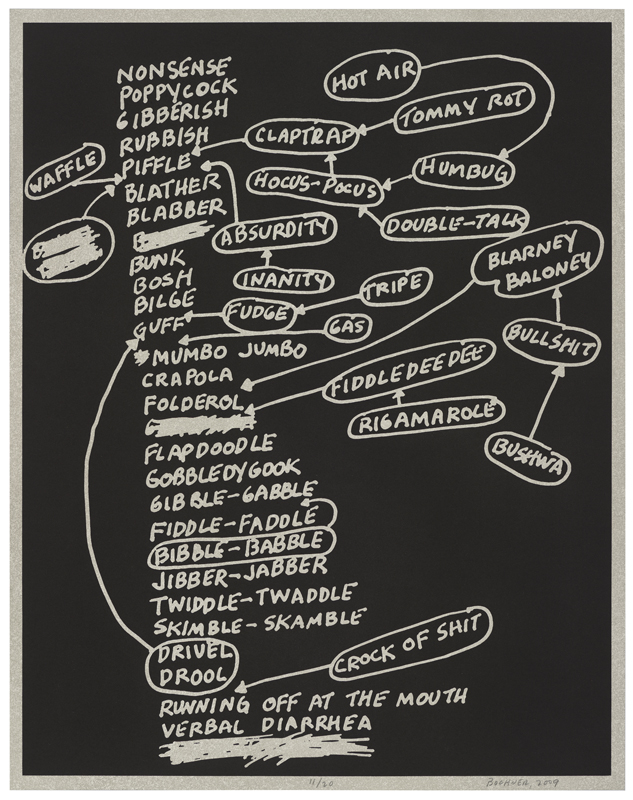 NONSENSE
POPPYCOCK
GIBBERISH
RUBBISH
PIFFLE
BLATHER
BLABBER
BUNK
BOSH
BILGE
GUFF
MUMBO JUMBO
CRAPOLA
FOLDEROL
FLAPDOODLE
GOBBLEDYGOOK
GIBBLE-GABBLE
FIDDLE-FADDLE
BIBBLE-BABBLE
JIBBER-JABBER
TWIDDLE-TWADDLE
SKIMBLE-SKAMBLE
DRIVEL
DROOL
RUNNING OFF AT THE MOUTH
VERBAL DIARRHEA
WAFFLE
HOT AIR
TOMMY ROT
CLAPTRAP
HUMBUG
HOCUS-POCUS
DOUBLE-TALK
ABSURDITY
INANITY
BLARNEY
BALONEY
TRIPE
FUDGE
GAS
BULLSHIT
FIDDLEDEEDEE
RIGAMAROLE
BUSHWA
CROCK OF SHIT
11/20
BOCHNER, 2009